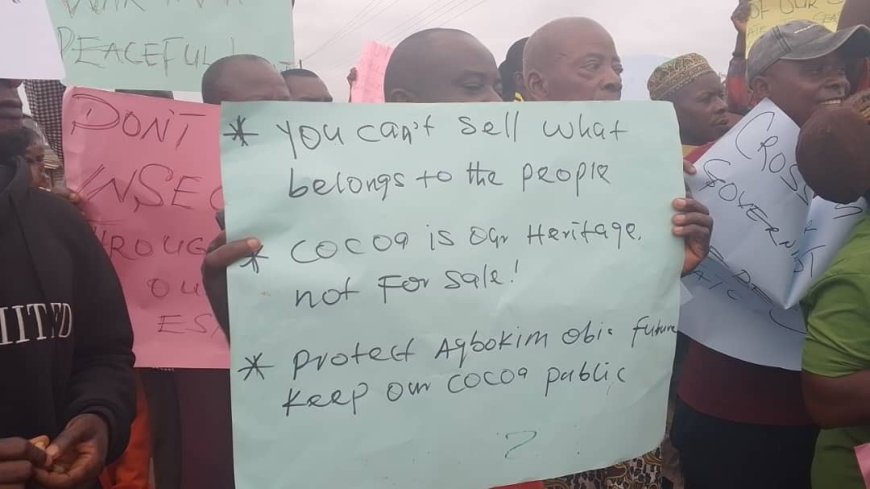 PEACEFUL!
OF OUR
DON'T
INSEC
THROUG
OU
ES
* You can't sell what
belongs to the people
* Cocoa is our Heritage,
not For sale!
* Protect Agbokim Obic future
Keep our cocoa public
CROSS
GOVERNMENT
IITED